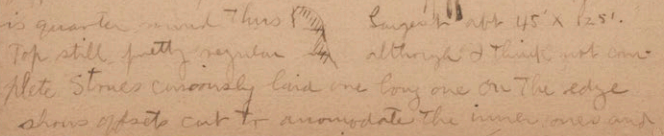 is quarter round Thus Largest abt 45' x 125'.
Top still pretty regular although I think not com-
plete Stones curiously laid one long one on The edge
shows offsets cut to accomodate the inner ones and